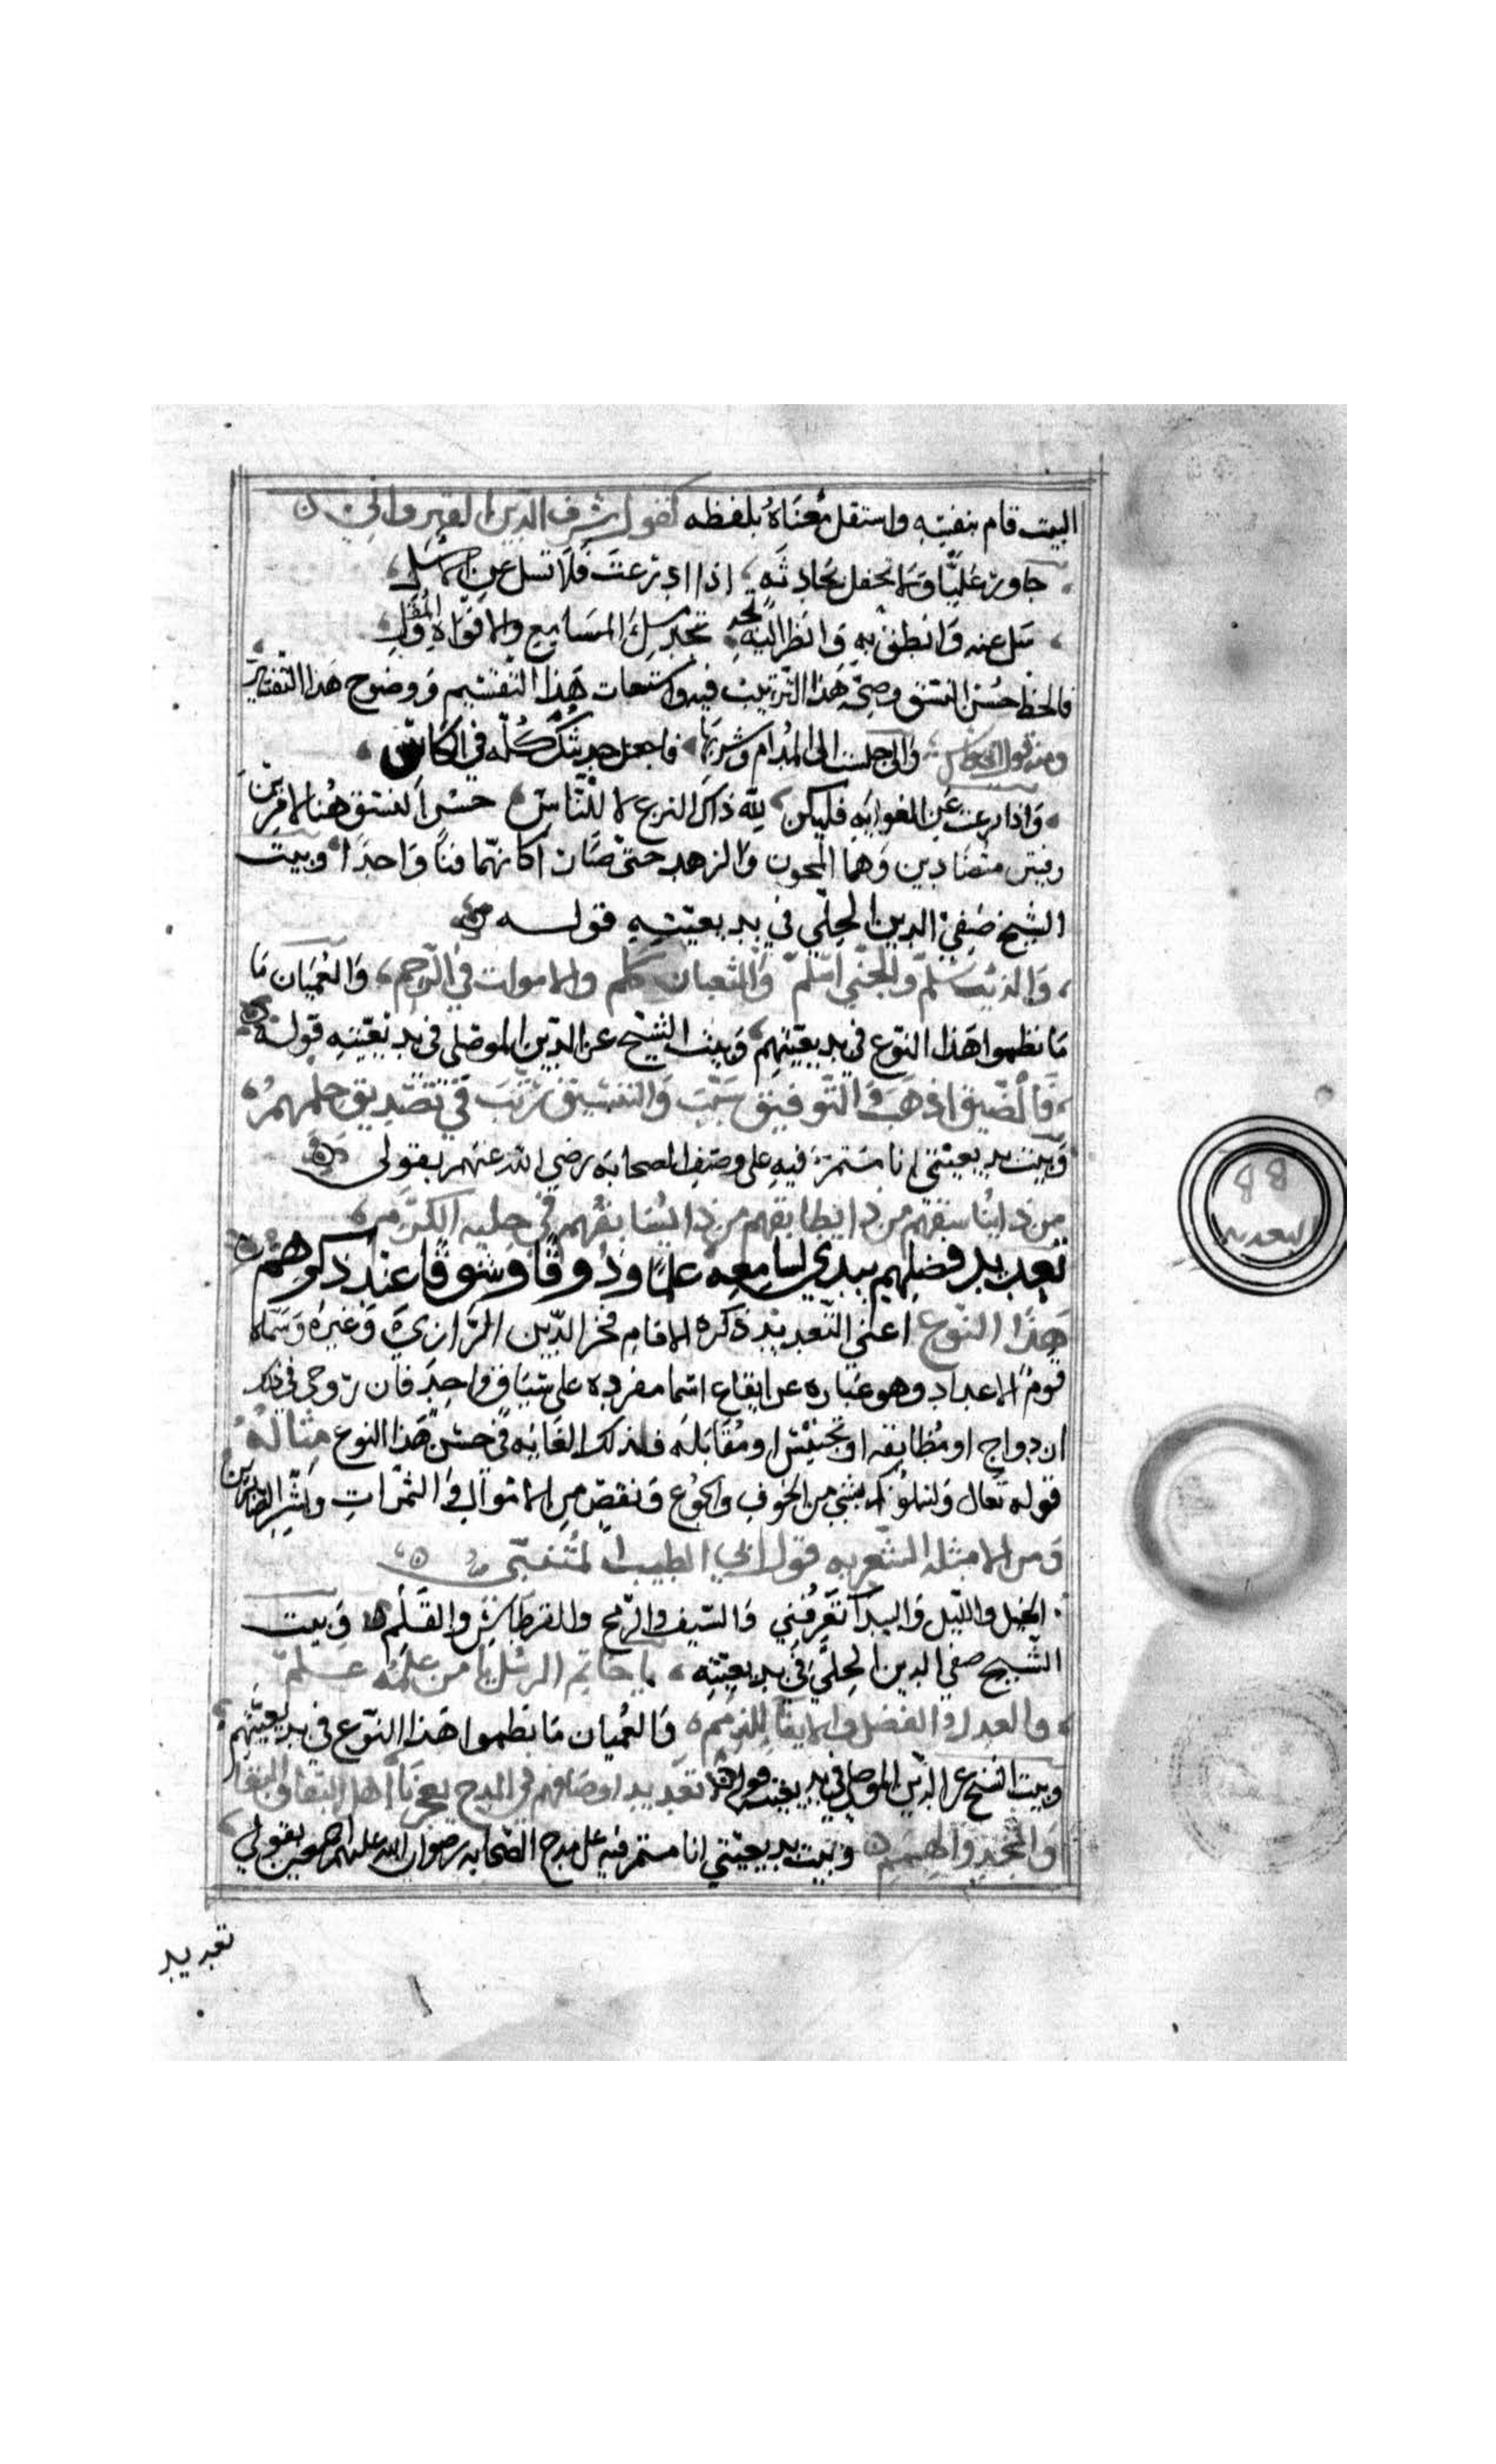 البيت قام بنفسه واستقل معناه بلفظه كقول شرف الدين القيرواني
جاور عليا ولا تحفل بحادثة اذا ادرعت فلا تسل عن الاسل
سل عنه وانطق به وانظر اليه تجد ملء المسامع والافواه والمقل
فالحظ حسن النسق وصحة هذا الترتيب فيه واستيعاب هذا التقسيم ووضوح هذا التفسير
ومنه قول ابي نواس واذا جلست الى المدام وشربها فاجعل حديثك كله في الكاس
واذا نزعت عن الغوايه فليكن لله ذاك النزع لا للناس حسن النسق هنا لام بين
فنين متضادين وهما المجون والزهد حتى صارا كانهما فنا واحدا وبيت
الشيخ صفي الدين الحلي في بديعيته قوله
والذيب سلم والجني اسلم والثعبان كلم والاموات في الرجم والعميان ما
ما نظموا هذا النوع في بديعيتهم وبيت الشيخ عز الدين الموصلي في بديعيته قوله
فالضيق اذهب والتوفيق سبب والتنسيق رتب في تصديق حلمهم
وبيت بديعيتي انا مستمر فيه على وصف الصحابه رضي الله عنهم بقولي
من ذا يناسقهم من ذا يطابقهم من ذا يسابقهم في حلبة الكرم
تعديد فضلهم يبدي لسامعه علما وذوقا وشوقا عند ذكرهم
هذا النوع اعني التعديد ذكره الامام فخر الدين الرازي وغيره وسماه
قوم الاعداد وهو عباره عن ايقاع اسما مفرده على سياق واحد فان روعي في ذلك
ازدواج او مطابقه او تجنيس او مقابله فذلك الغايه في حسن هذا النوع مثاله
قوله تعالى ولنبلونكم بشي من الخوف والجوع ونقص من الاموال والثمرات وبشر الصابرين
ومن الامثله الشعريه قول ابي الطيب المتنبي
الخيل والليل والبيدا تعرفني والسيف والرمح والقرطاس والقلم وبيت
الشيخ صفي الدين الحلي في بديعيته يا خاتم الرسل يا من علمه علم
والعدل والفضل والايفا للذمم والعميان ما نظموا هذا النوع في بديعيتهم
وبيت الشيخ عز الدين الموصلي في بديعيته قوله تعديد اوصافهم في المدح يعجزنا اهل التقا والنقا
والمجد والهمم وبيت بديعيتي انا مستمر فيه على مدح الصحابه رضوان الله عليهم اجمعين بقولي
تعديد
88
التعديد